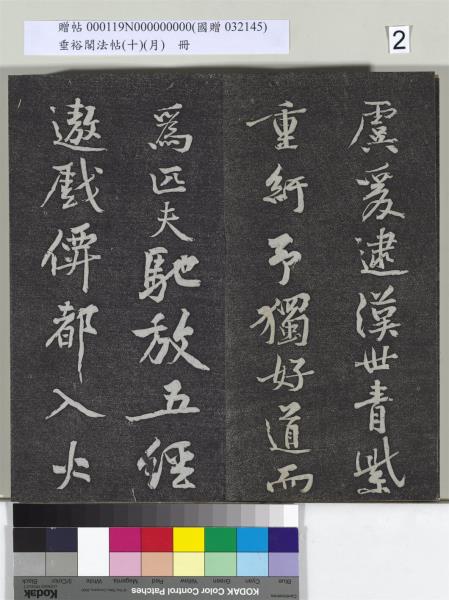 贈帖 000119N000000000(國贈 032145)
垂裕閣法帖(十)(月) 冊
2
虞爰逮漢世青紫
重紆予獨好道而
為匹夫馳放五經
遨戲僊都入火
Blue Cyan Green Yellow Red Magenta White 3/Color Black
KODAK Color Control Patches
Kodak